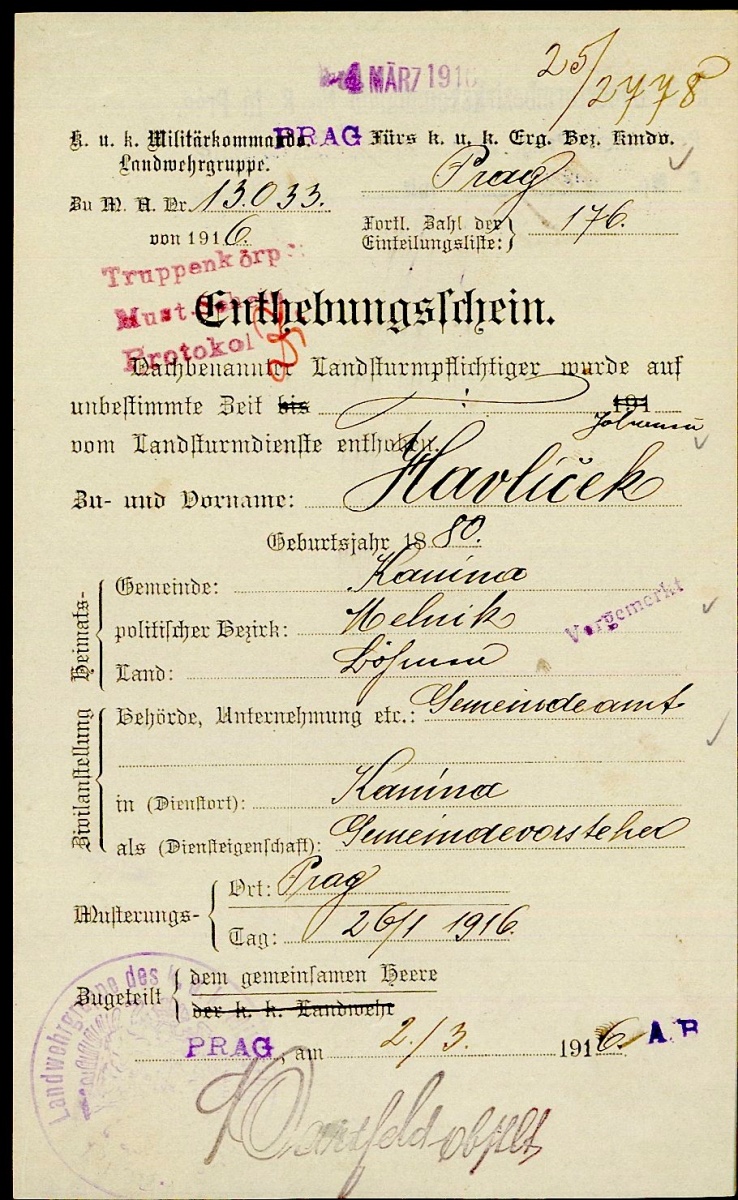 4 MÄRZ 1916
25/2778
K. u. k. Militärkommando PRAG Fürs k. u. k. Erg. Bez. Kmdo.
Landwehrgruppe. Prag
Zu M. A. Nr. 13.033. Fortl. Zahl der Einteilungsliste: 176.
von 1916.
Truppenkörp
Must.
Protokol
Enthebungsschein.
Nachbenannter Landsturmpflichtiger wurde auf
unbestimmte Zeit bis 191
vom Landsturmdienste enthoben.
Zu- und Vorname: Havlíček
Geburtsjahr 1880.
Heimats-
Gemeinde: Kanina
politischer Bezirk: Melnik
Vorgemerkt
Land: Böhmen
Zivilanstellung
Behörde, Unternehmung etc.: Gemeindeamt
in (Dienstort): Kanina
als (Diensteigenschaft): Gemeindevorsteher
Musterungs-
Ort: Prag
Tag: 26/1 1916
Zugeteilt
dem gemeinsamen Heere
der k. k. Landwehr
PRAG, am 2./3. 1916. A.B
Landwehrgruppe des k.